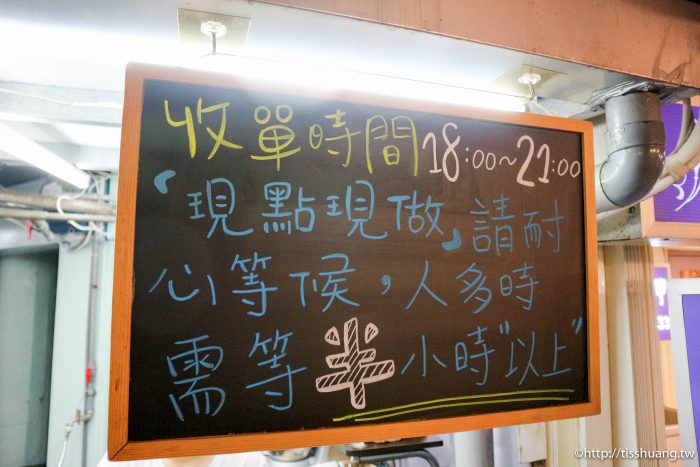 收單時間18:00~21:00
「現點現做」請耐
心等候，人多時
需等半小時"以上"
33
©http://tisshuang.tw